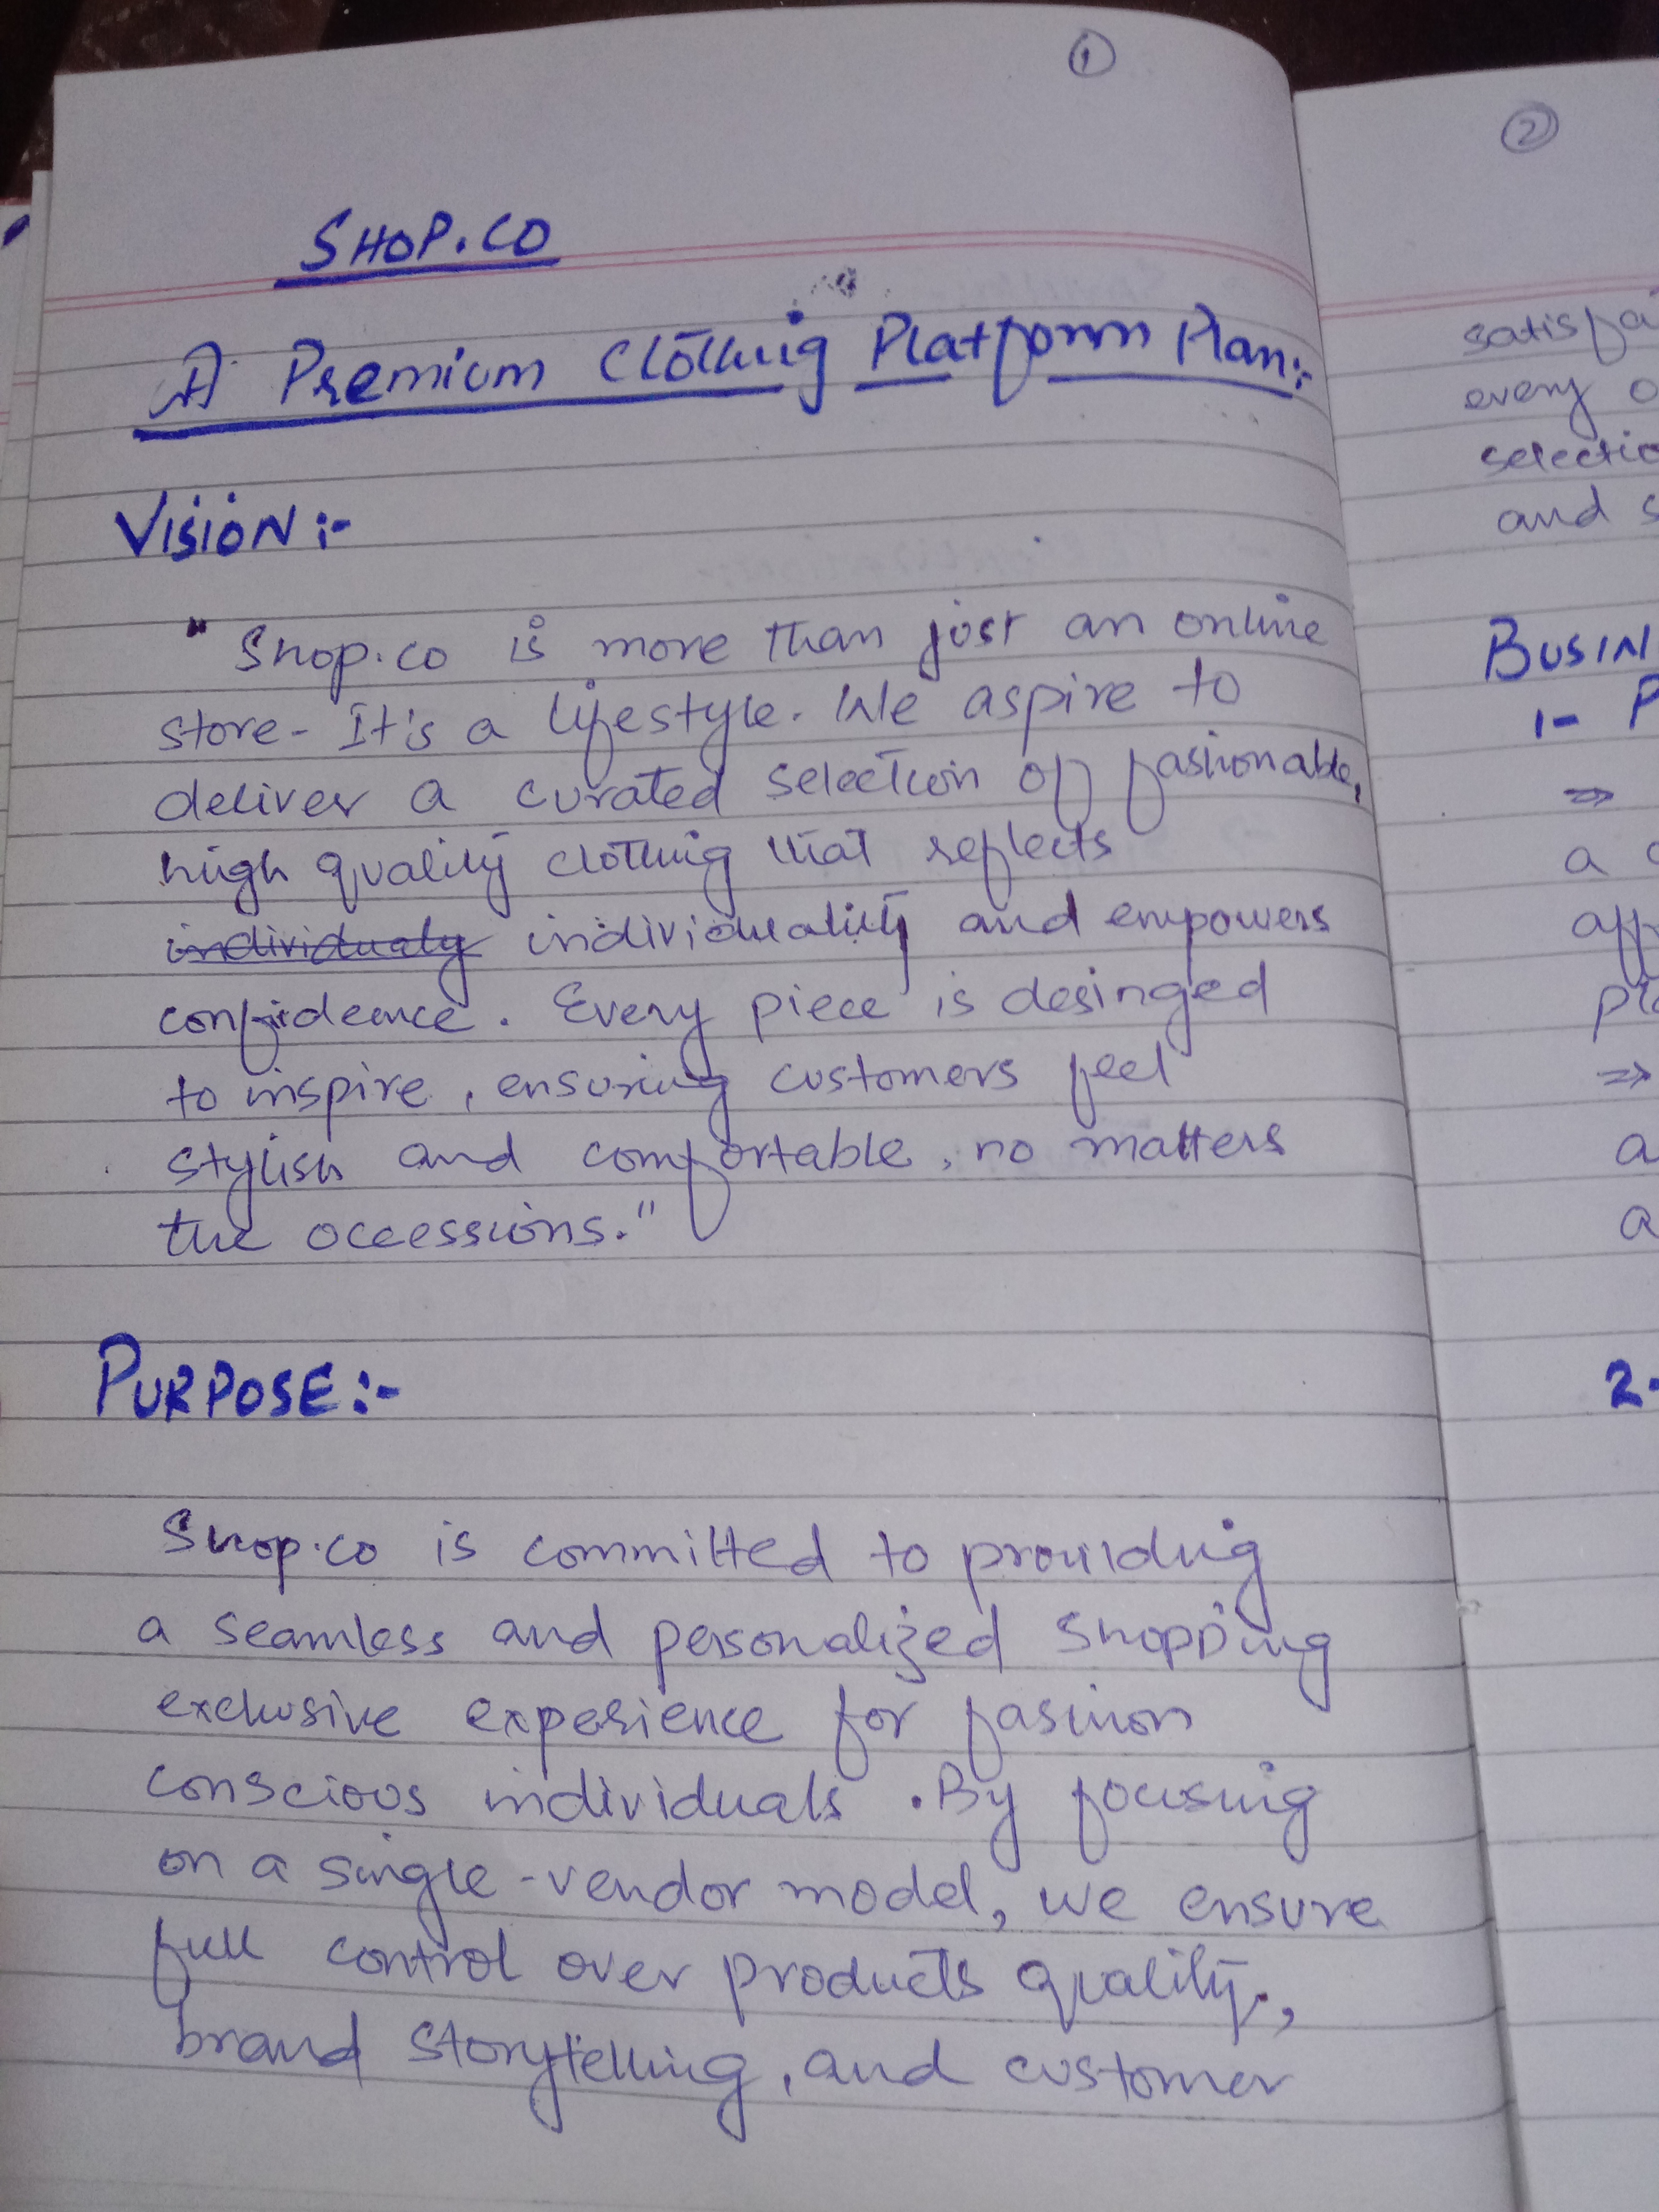 1
SHOP.CO
A Premium Clothing Platform Plan:-
VISION:-
"Shop.co is more than just an online
store- It's a lifestyle. We aspire to
deliver a curated selection of fashionable,
high quality clothing that reflects
individualy individuality and empowers
confidence. Every piece is desinged
to inspire, ensuring customers feel
stylish and comfortable, no matters
the occessions."
PURPOSE:-
Shop.co is committed to providing
a seamless and personalized shopping
exclusive experience for fashion
conscious individuals. By focusing
on a single-vendor model, we ensure
full control over products quality.,
brand storytelling, and customer
2
satisfa
every o
selectio
and s
BUSIN
1- P
⇒
a
aff
pla
⇒
a
a
2.